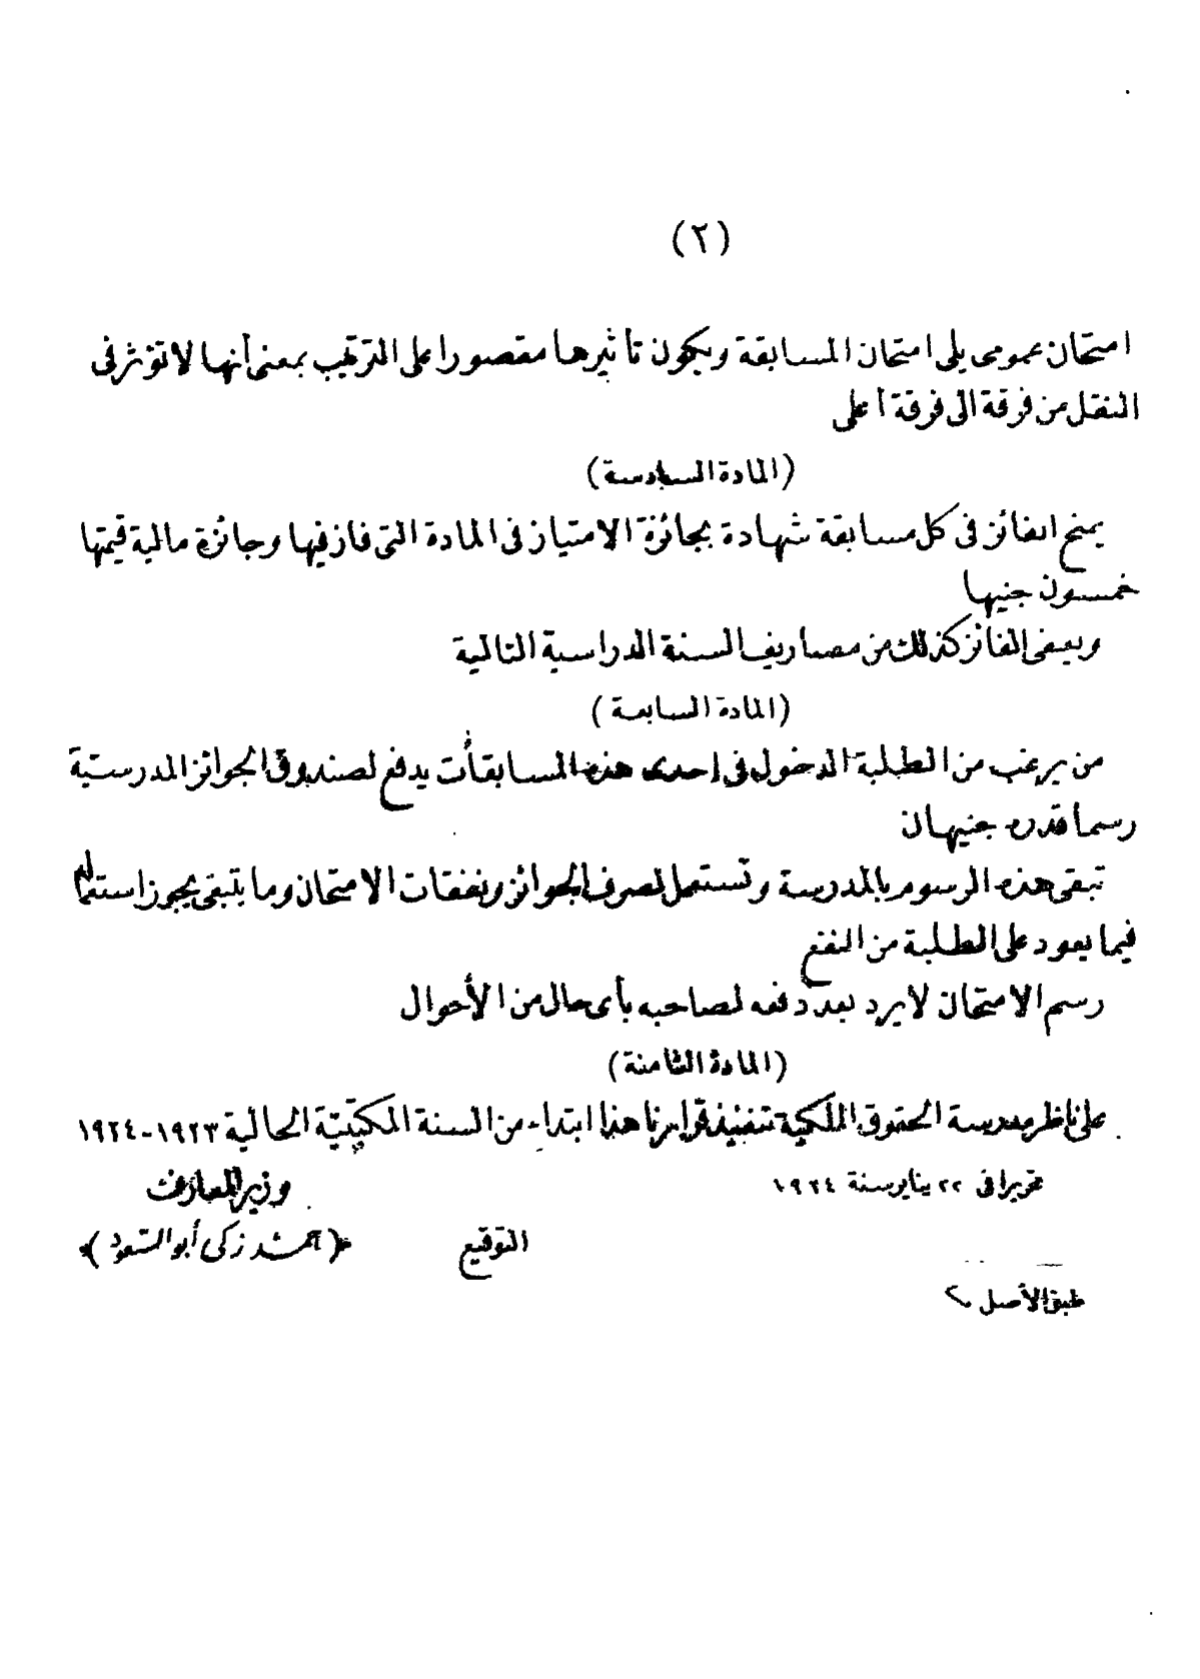 (٢)
امتحان عمومى يلى امتحان المسابقة ويكون تأثيرها مقصورا على الترتيب بمعنى أنها لا تؤثر فى
النقل من فرقة الى فرقة أعلى
(المادة السادسة)
يمنح الفائز فى كل مسابقة شهادة بجائزة الامتياز فى المادة التى فاز فيها وجائزة مالية قيمتها
خمسون جنيها
ويعفى الفائز كذلك من مصاريف السنة الدراسية التالية
(المادة السابعة)
من يرغب من الطلبة الدخول فى إحدى هذه المسابقات يدفع لصندوق الجوائز المدرسية
رسما قدره جنيهان
تبقى هذه الرسوم بالمدرسة وتستعمل لصرف الجوائز ونفقات الامتحان وما يتبقى يجوز استعماله
فيما يعود على الطلبة من النفع
رسم الامتحان لا يرد بعد دفعه لصاحبه بأى حال من الأحوال
(المادة الثامنة)
على ناظر مدرسة الحقوق الملكية تنفيذ قرارنا هذا ابتداء من السنة المكتبية الحالية ١٩٢٣-١٩٢٤
تحريرا فى ٢٢ يناير سنة ١٩٢٤
وزير المعارف
التوقيع (أحمد زكى أبو السعود)
طبق الأصل